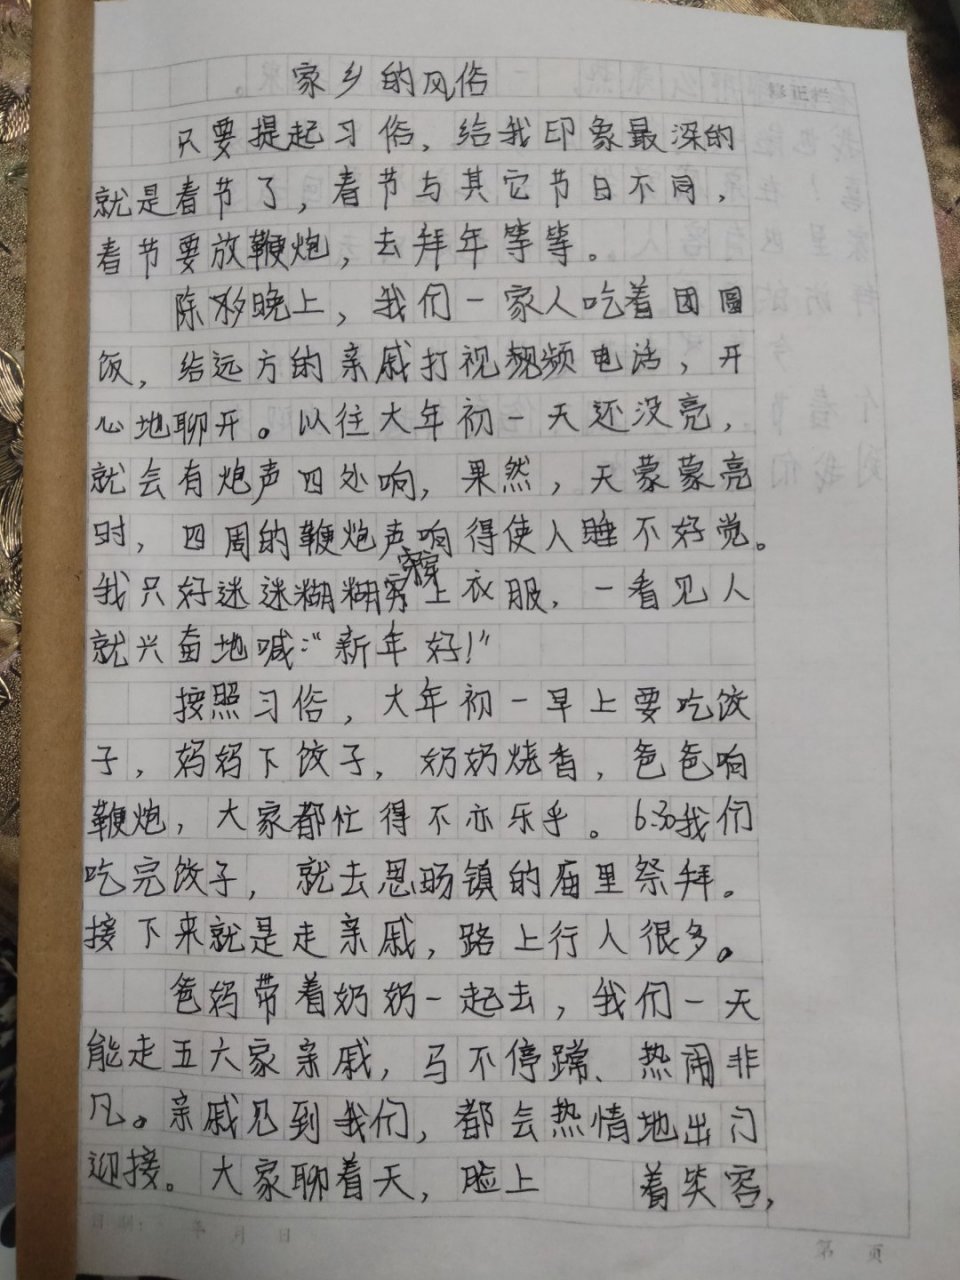 家乡的风俗
修正栏
只要提起习俗，给我印象最深的
就是春节了，春节与其它节日不同，
春节要放鞭炮，去拜年等等。
除夕晚上，我们一家人吃着团圆
饭，给远方的亲戚打视频电话，开
心地聊开。以往大年初一天还没亮，
就会有炮声四处响，果然，天蒙蒙亮
时，四周的鞭炮声响得使人睡不好觉。
我只好迷迷糊糊穿上衣服，一看见人
就兴奋地喊："新年好！"
按照习俗，大年初一早上要吃饺
子，妈妈下饺子，奶奶烧香，爸爸响
鞭炮，大家都忙得不亦乐乎。6:30我们
吃完饺子，就去恩旸镇的庙里祭拜。
接下来就是走亲戚，路上行人很多。
爸妈带着奶奶一起去，我们一天
能走五六家亲戚，马不停蹄、热闹非
凡。亲戚见到我们，都会热情地出门
迎接。大家聊着天，脸上 着笑容，
年 月 日
第 页